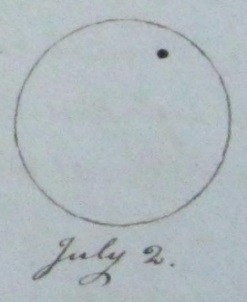 July 2.